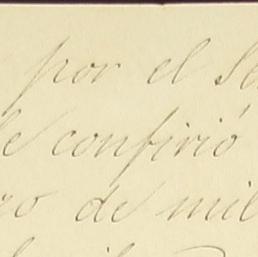 por el Se
le confirió
ro de mil